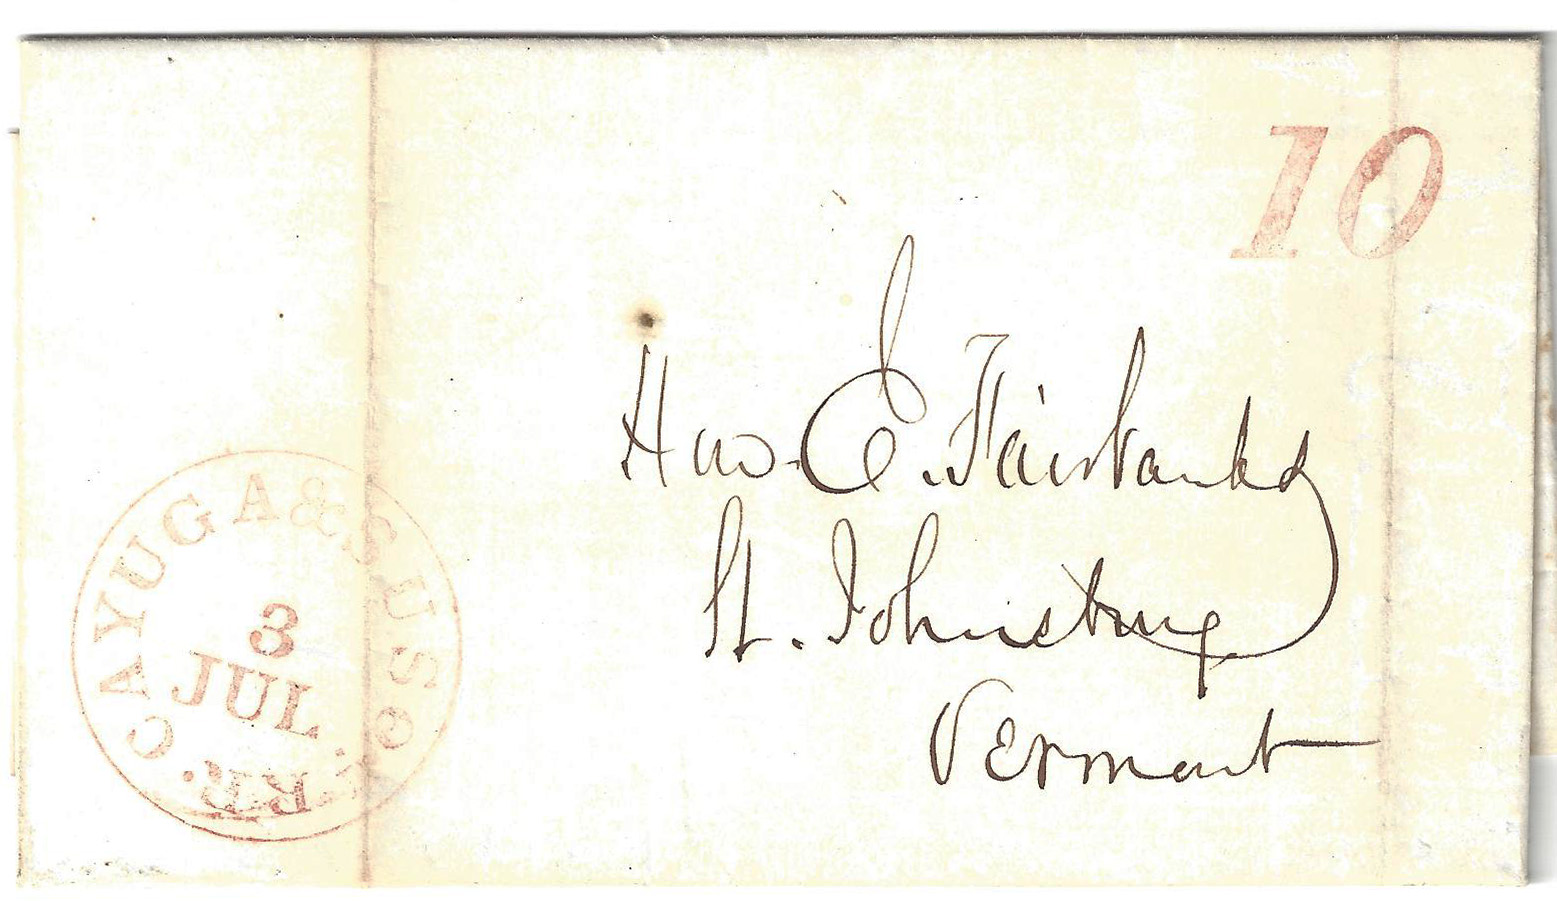 10
Hon. E. Fairbanks
St. Johnsbury
Vermont
CAYUGA & SUSQ. R.R.
3
JUL